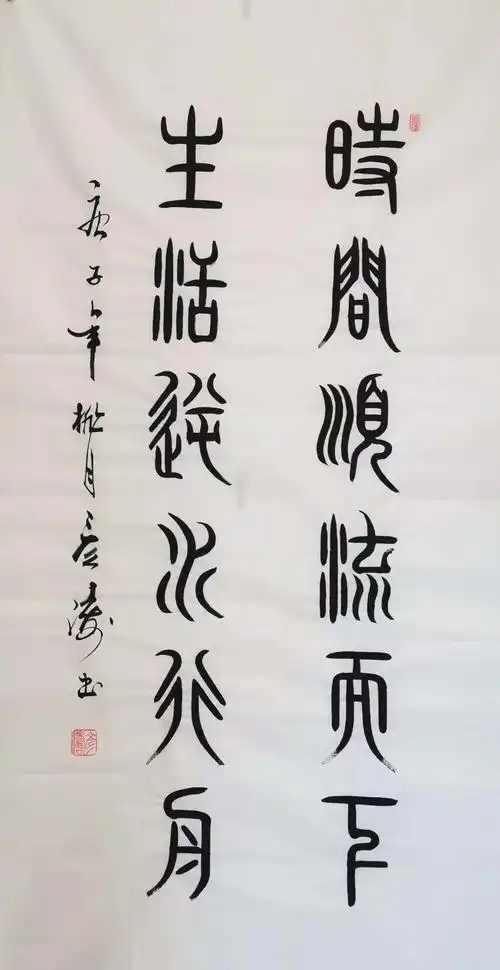 時間順流而下
生活逆水行舟
庚子年桃月彦濤書